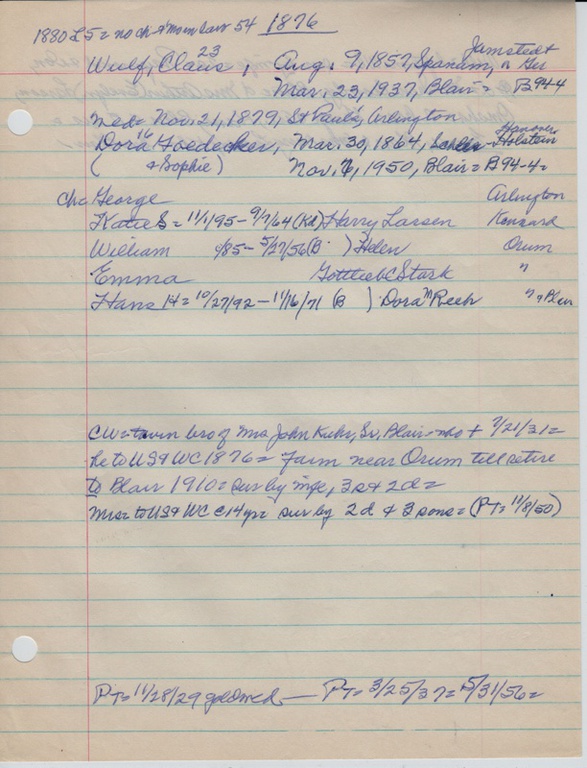 1880 L5 = no ch + Mom law 54 1876
Jamstedt
23
Wulf, Claus, Aug. 9, 1857, Spanam, n Ger
Mar. 23, 1937, Blair = B94-4
Med = Nov. 21, 1879, St Pauls, Arlington
Hanover
16
Dora Goedecker, Mar. 30, 1864, Holstein
(+ Sophie) Nov. 7, 1950, Blair = B94-4=
Ch = George Arlington
Katie S = 11/1/95 - 9/7/64 (Kd) Harry Larsen Kennard
William /85 - 5/27/56 (B ) Helen Orum
Emma Gottlieb C Stark "
Hans H = 10/27/92 - 11/16/71 (B ) Dora M Reeh " , Blair
CW = twin bro of Mrs John Kuhr, Sr, Blair - who + 7/21/31 =
he to US & WC 1876 = Farm near Orum till retire
to Blair 1910 = sur by mge, 3 s + 2 d =
Mrs = to US & WC @ 14 yr = sur by 2 d + 3 sons = (PT = 11/8/50)
PT = 11/28/29 gold wed — PT = 3/25/37 = 5/31/56 =